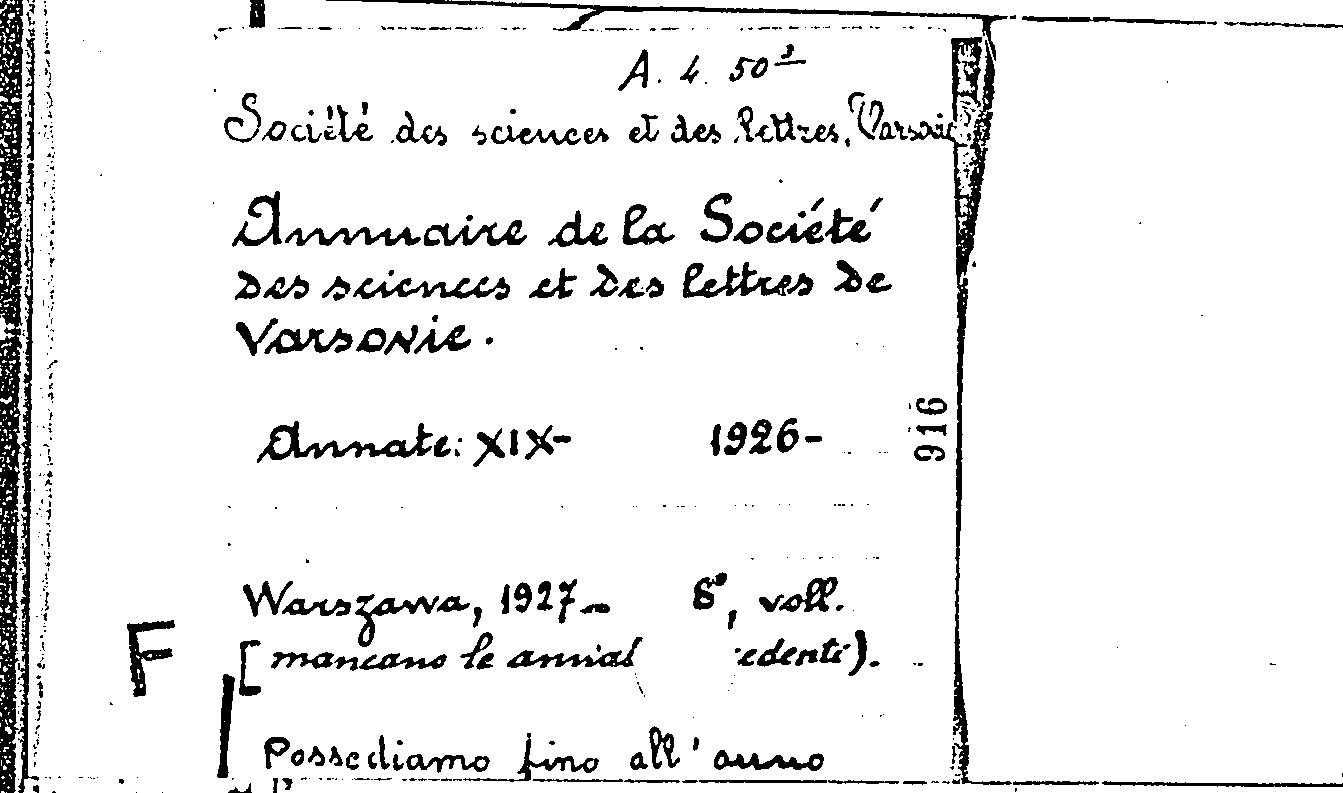 A. 4. 50³
Société des sciences et des lettres, Varsovie
Annuaire de la Société
des sciences et des lettres de
Varsovie.
Annate: XIX- 1926-
916
Warszawa, 1927- 8°, voll.
F
[mancano le annat edenti).
Possediamo fino all'anno